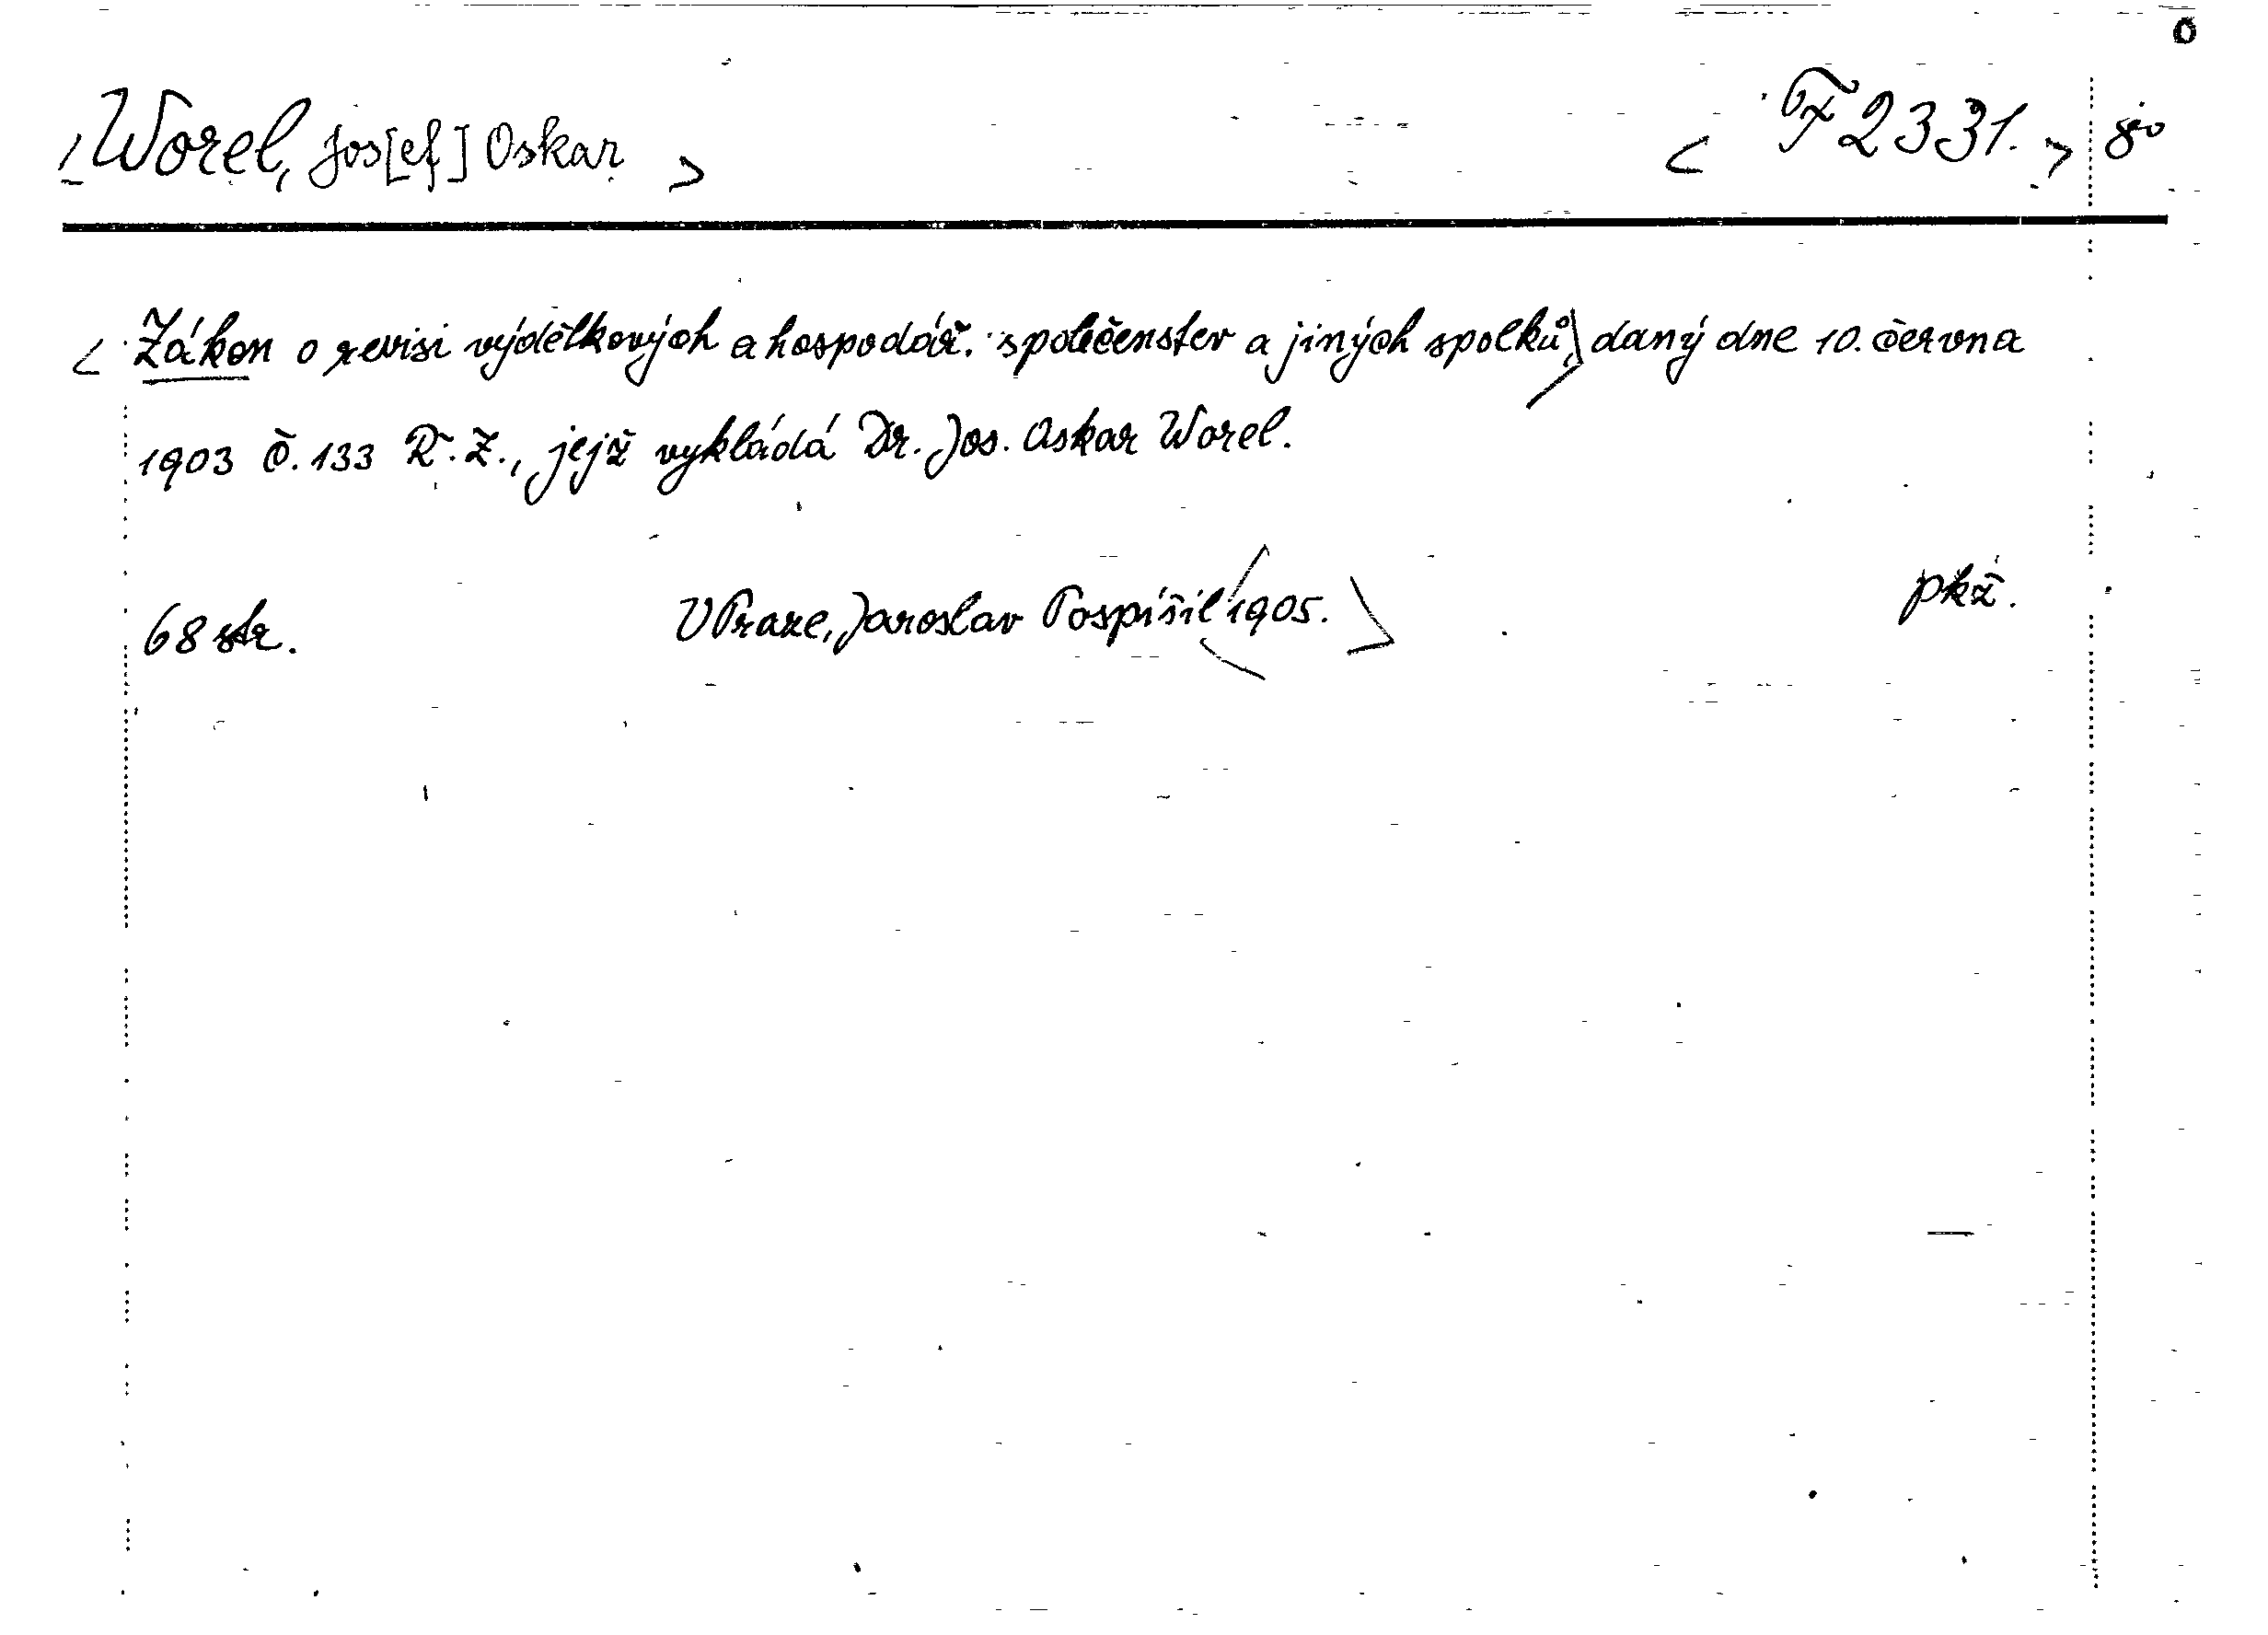 o
<Worel, Jos[ef] Oskar > < F 2331. > 8°
< Zákon o revisi výdělkových a hospodář. společenstev a jiných spolků,> daný dne 10. června
1903 č. 133 Ř. Z., jejž vykládá Dr. Jos. Oskar Worel.
pkž.
68 str. V Praze, Jaroslav Pospíšil <1905. >